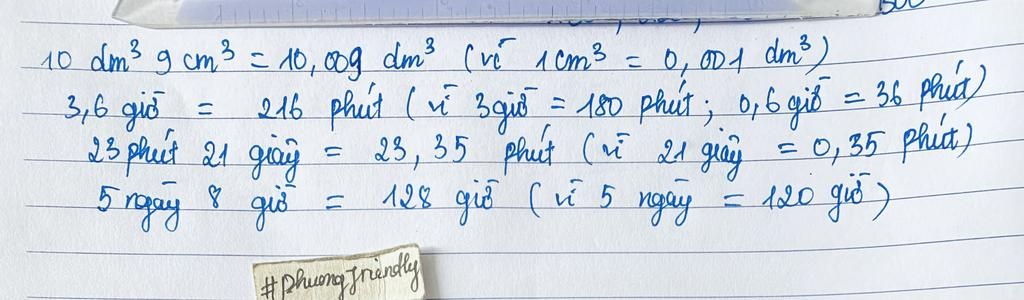 10 dm³ 9 cm³ = 10,009 dm³ (vì 1cm³ = 0,001 dm³)
3,6 giờ = 216 phút (vì 3giờ = 180 phút; 0,6 giờ = 36 phút)
23 phút 21 giây = 23,35 phút (vì 21 giây = 0,35 phút)
5 ngày 8 giờ = 128 giờ (vì 5 ngày = 120 giờ)
#phuongfriendly